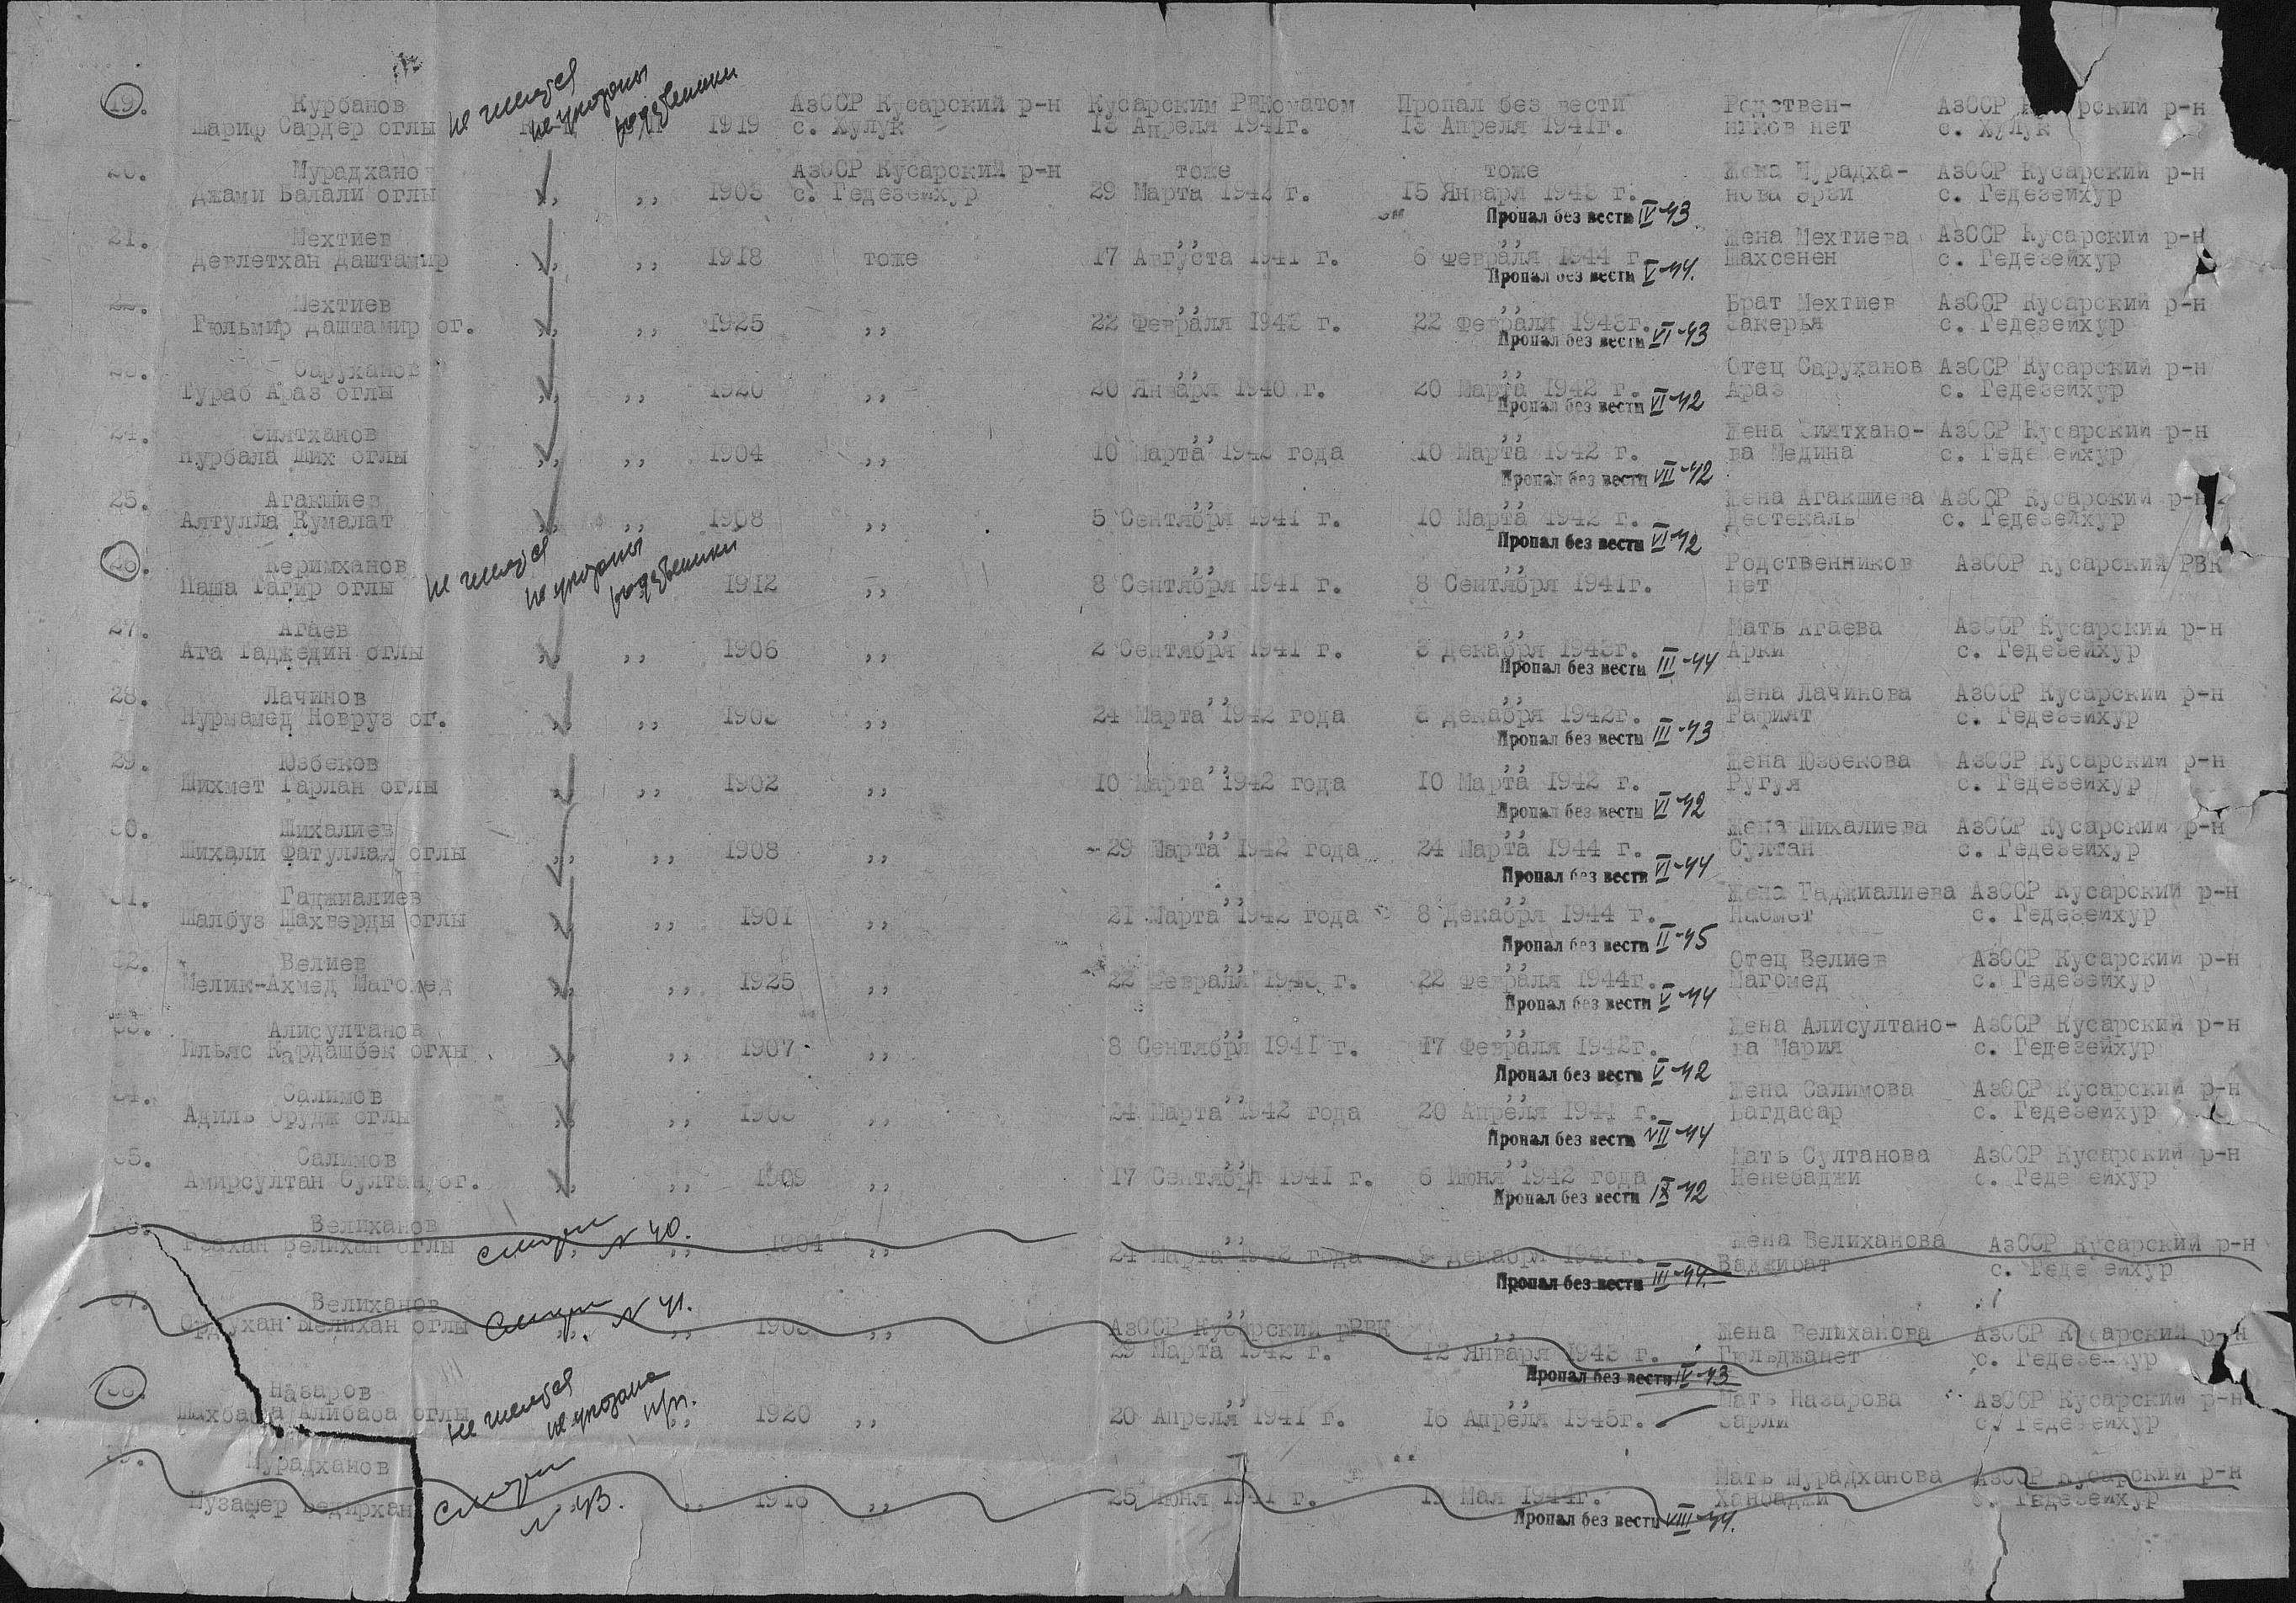 19. Курбанов АзССР Кусарский р-н Кусарским РВКоматом Пропал без вести Родствен- АзССР Кусарский р-н
Шариф Сардер оглы 1919 с. Хулук 13 Апреля 1941г. 13 Апреля 1941г. ников нет с. Хулук
не имеется
не указаны
20. Мурадханов АзССР Кусарский р-н тоже тоже Жена Мурадха- АзССР Кусарский р-н
Джами Балали оглы ,, ,, с. Гедезейхур 29 Марта 1942 г. 15 Января 1943 г. нова с. Гедезейхур
Пропал без вести IV-43
21. Мехтиев ,, ,, Жена Мехтиева АзССР Кусарский р-н
Девлетхан Даштамир ,, ,, 1918 тоже 17 Августа 1941 г. 6 Февраля 1944 г. Шахсенен с. Гедезейхур
Пропал без вести V-44.
22. Мехтиев ,, Брат Мехтиев АзССР Кусарский р-н
Гюльмир Даштамир ог. ,, ,, 1925 ,, 22 Февраля 1943 г. 22 Февраля 1943г. Закерья с. Гедезейхур
Пропал без вести VI-43
23. Саруханов ,, ,, Отец Саруханов АзССР Кусарский р-н
Тураб Араз оглы ,, ,, 1920 ,, 20 Января 1940 г. 20 Марта 1942 г. Араз с. Гедезейхур
Пропал без вести VI-42
24. Зиятханов ,, ,, Жена Зиятхано- АзССР Кусарский р-н
Нурбала Ших оглы ,, ,, 1904 ,, 10 Марта 1942 года 10 Марта 1942 г. ва Медина с. Гедезейхур
Пропал без вести VII-42
25. Агакшиев ,, ,, Жена Агакшиева АзССР Кусарский р-н
Аятулла Кумалат ,, ,, 1908 ,, 5 Сентября 1941 г. 10 Марта 1942 г. Дестекаль с. Гедезейхур
Пропал без вести VI-42
26. Керимханов ,, ,, Родственников АзССР Кусарский РВК
Паша Тагир оглы 1912 ,, 8 Сентября 1941 г. 8 Сентября 1941г. нет
не имеется
не указаны
27. Агаев ,, ,, Мать Агаева АзССР Кусарский р-н
Ага Таджедин оглы ,, ,, 1906 ,, 2 Сентября 1941 г. Декабря 1943г. Арки с. Гедезейхур
Пропал без вести III-44
28. Лачинов ,, ,, Жена Лачинова АзССР Кусарский р-н
Нурмамед Новруз ог. ,, ,, ,, 24 Марта 1942 года Декабря 1942г. Рафият с. Гедезейхур
Пропал без вести III-43
29. Юзбеков ,, ,, Жена Юзбекова АзССР Кусарский р-н
Шихмет Тарлан оглы ,, ,, 1902 ,, 10 Марта 1942 года 10 Марта 1942 г. Ругуя с. Гедезейхур
Пропал без вести VI-42
30. Шихалиев ,, ,, Жена Шихалиева АзССР Кусарский р-н
Шихали Фатуллах оглы ,, ,, 1908 ,, 29 Марта 1942 года 24 Марта 1944 г. Султан с. Гедезейхур
Пропал без вести VI-44
31. Гаджиалиев ,, Жена Гаджиалиева АзССР Кусарский р-н
Шалбуз Шахверды оглы ,, ,, 1901 ,, 21 Марта 1942 года 8 Декабря 1944 г. с. Гедезейхур
Пропал без вести II-45
32. Велиев ,, ,, Отец Велиев АзССР Кусарский р-н
Мелик-Ахмед Магомед ,, ,, 1925 ,, 22 Февраля 1943 г. 22 Февраля 1944г. Магомед с. Гедезейхур
Пропал без вести V-44
33. Алисултанов ,, ,, Жена Алисултано- АзССР Кусарский р-н
Ильяс Кардашбек оглы ,, ,, 1907 ,, 8 Сентября 1941 г. 17 Февраля 1942г. ва Мария с. Гедезейхур
Пропал без вести V-42
34. Салимов ,, ,, Жена Салимова АзССР Кусарский р-н
Адиль Орудж оглы ,, ,, ,, 24 Марта 1942 года 20 Апреля 1944 г. Багдасар с. Гедезейхур
Пропал без вести VII-44
35. Салимов ,, ,, Мать Султанова АзССР Кусарский р-н
Амирсултан Султан ог. ,, ,, 1909 ,, 17 Сентября 1941 г. 6 Июня 1942 года Ненебаджи с. Гедезейхур
Пропал без вести IX-42
36. Велиханов смотри N 40. ,, Жена Велиханова АзССР Кусарский р-н
Велихан оглы ,, ,, 1904 ,, 24 Марта 1942 года Декабря 1943г. Ваджибат с. Гедезейхур
Пропал без вести III-44.
37. Велиханов смотри N 41. ,,
Ордухан Мелихан оглы ,, ,, ,, АзССР Кусарский рРВК ,, Жена Велиханова АзССР Кусарский р-н
29 Марта 1942 г. 12 Января 1943 г. Гюльджанет с. Гедезейхур
Пропал без вести IV-43
38. Назаров ,, ,, Мать Назарова АзССР Кусарский р-н
Шахбаба Алибаба оглы ,, 1920 ,, 20 Апреля 1941 г. 16 Апреля 1945г. Зарли с. Гедезейхур
не имеется
не указана
39. Мурадханов смотри N 43. Мать Мурадханова АзССР Кусарский р-н
Музафер Бедирхан ,, ,, ,, 25 Июня 1941 г. Мая 1944г. Ханбаджи с. Гедезейхур
Пропал без вести VIII-44.